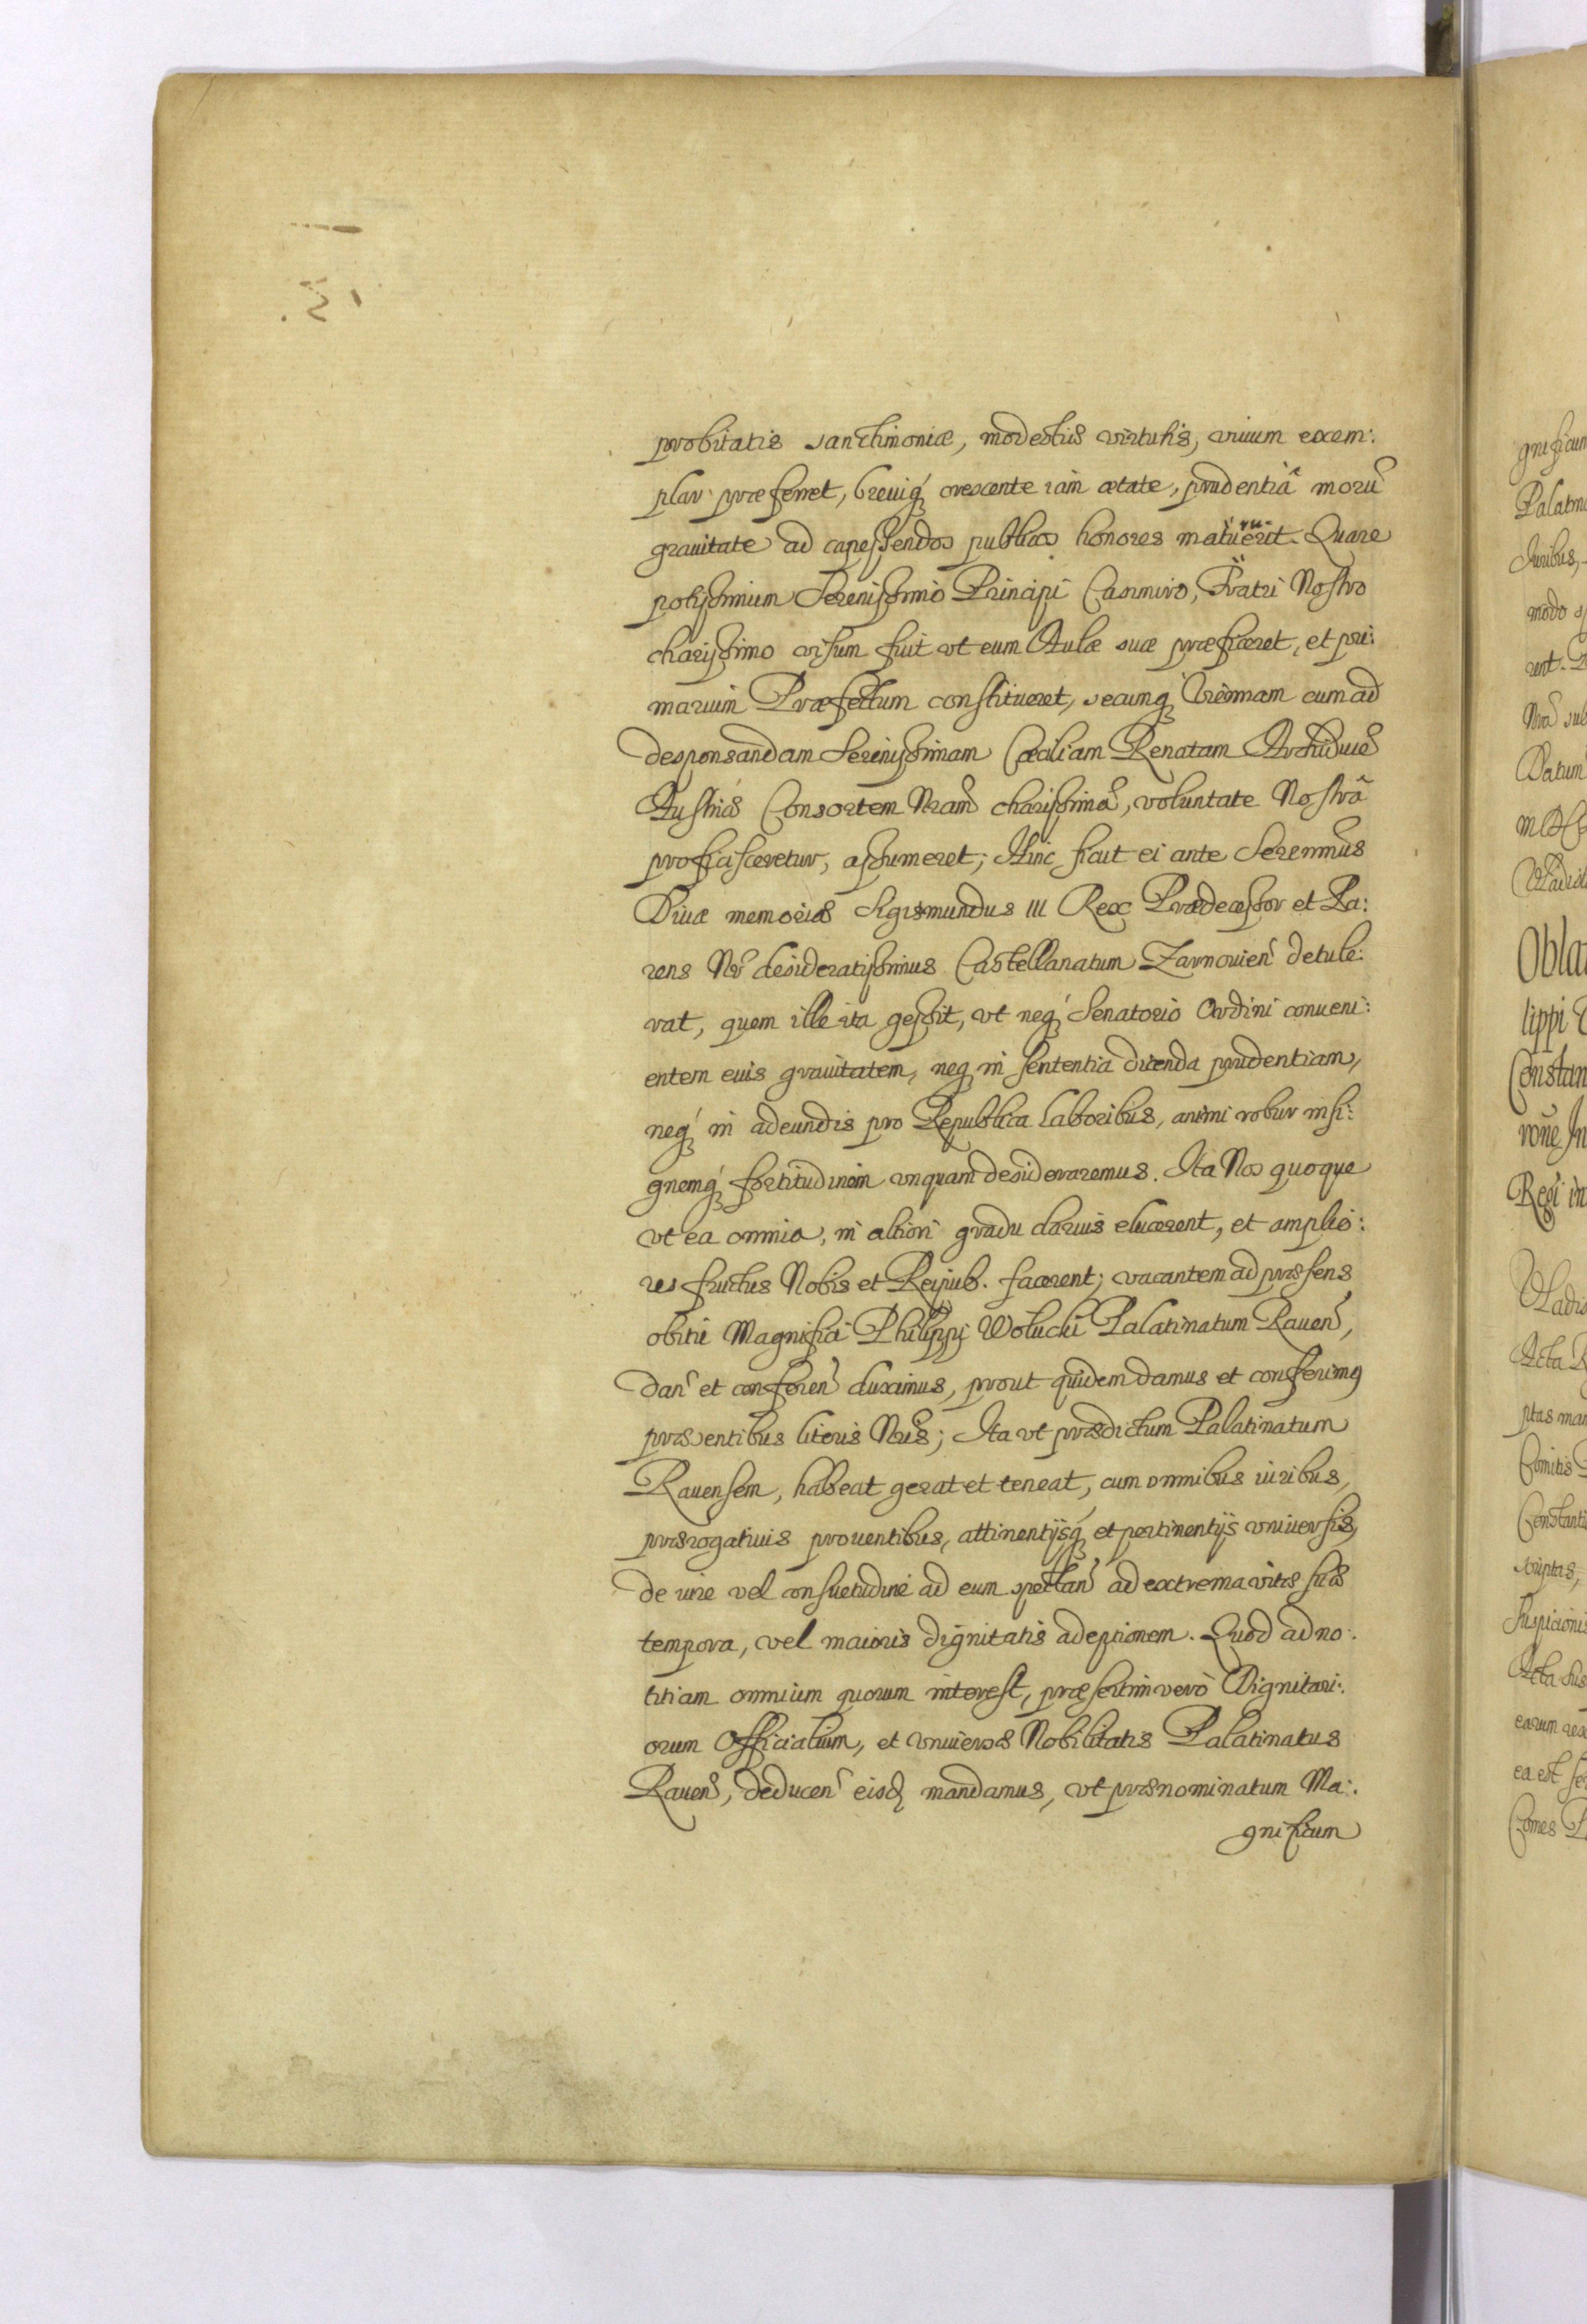 probitatis sanctimoniæ, modestiæ virtutis, viuum exem:
plar præferret, breuiq́ crescente iam ætate, prudentiâ morũ
grauitate ad capessendos publicos honores matuerit. Quare
potissimum Serenissimo Principi Casimiro, Fratri Nostro
charissimo visum fuit vt eum Aulæ suæ præficeret, et pri:
marium Præfectum constitueret, secumq́ Viennam cum ad
desponsandam Serenissimam Cæciliam Renatam Archiducẽ
Austriæ Consortem Nram charissimã, voluntate Nostrâ
proficisceretur, assumeret; Hinc sicut ei ante Serenmus
Diuæ memoriæ Sigismundus III Rex Prædecessor et Pa:
rens Nr desideratissimus Castellanatum Zarnouien detule:
rat, quem ille ita gessit, vt neq́ Senatorio Ordini conueni:
entem euis grauitatem, neq́ in sententia dicenda prudentiam,
neq́ in adeundis pro Republica laboribus, animi robur insi:
gnemq́ fortitudinem vnquam desideraremus. Ita Nos quoque
vt ea omnia, in altiori gradu clarius elucerent, et amplio:
res fructus Nobis et Reipub. facerent; vacantem ad præsens
obitu Magnifici Philippi Wolucki Palatinatum Rauen,
dan et conferen duximus, prout quidem damus et conferimꝰ
præsentibus literis Nris; Ita vt prædictum Palatinatum
Rauensem, habeat gerat et teneat, cum omnibus iuribus,
prærogatiuis prouentibus, attinentijsq́ et pertinentijs vniuersis,
de iure vel consuetudine ad eum spectan ad extrema vitæ suæ
tempora, vel maioris dignitatis adeptionem. Quod ad no:
titiam omnium quorum interest, præsertim verò Dignitari:
orum Officialium, et vniuersæ Nobilitatis Palatinatus
Rauen, deducen eisdꝫ mandamus, vt prænominatum Ma:
gnificum
gnificum
Palatin
Iuribus,
modo
rent.
Nra sub
Datum
Obla
lippi
Constan
Regi in
Vladis
Acta
ptas man
Comitis
Constanti
scriptas,
Suspicionis
Acta
earum
ea est
Comes